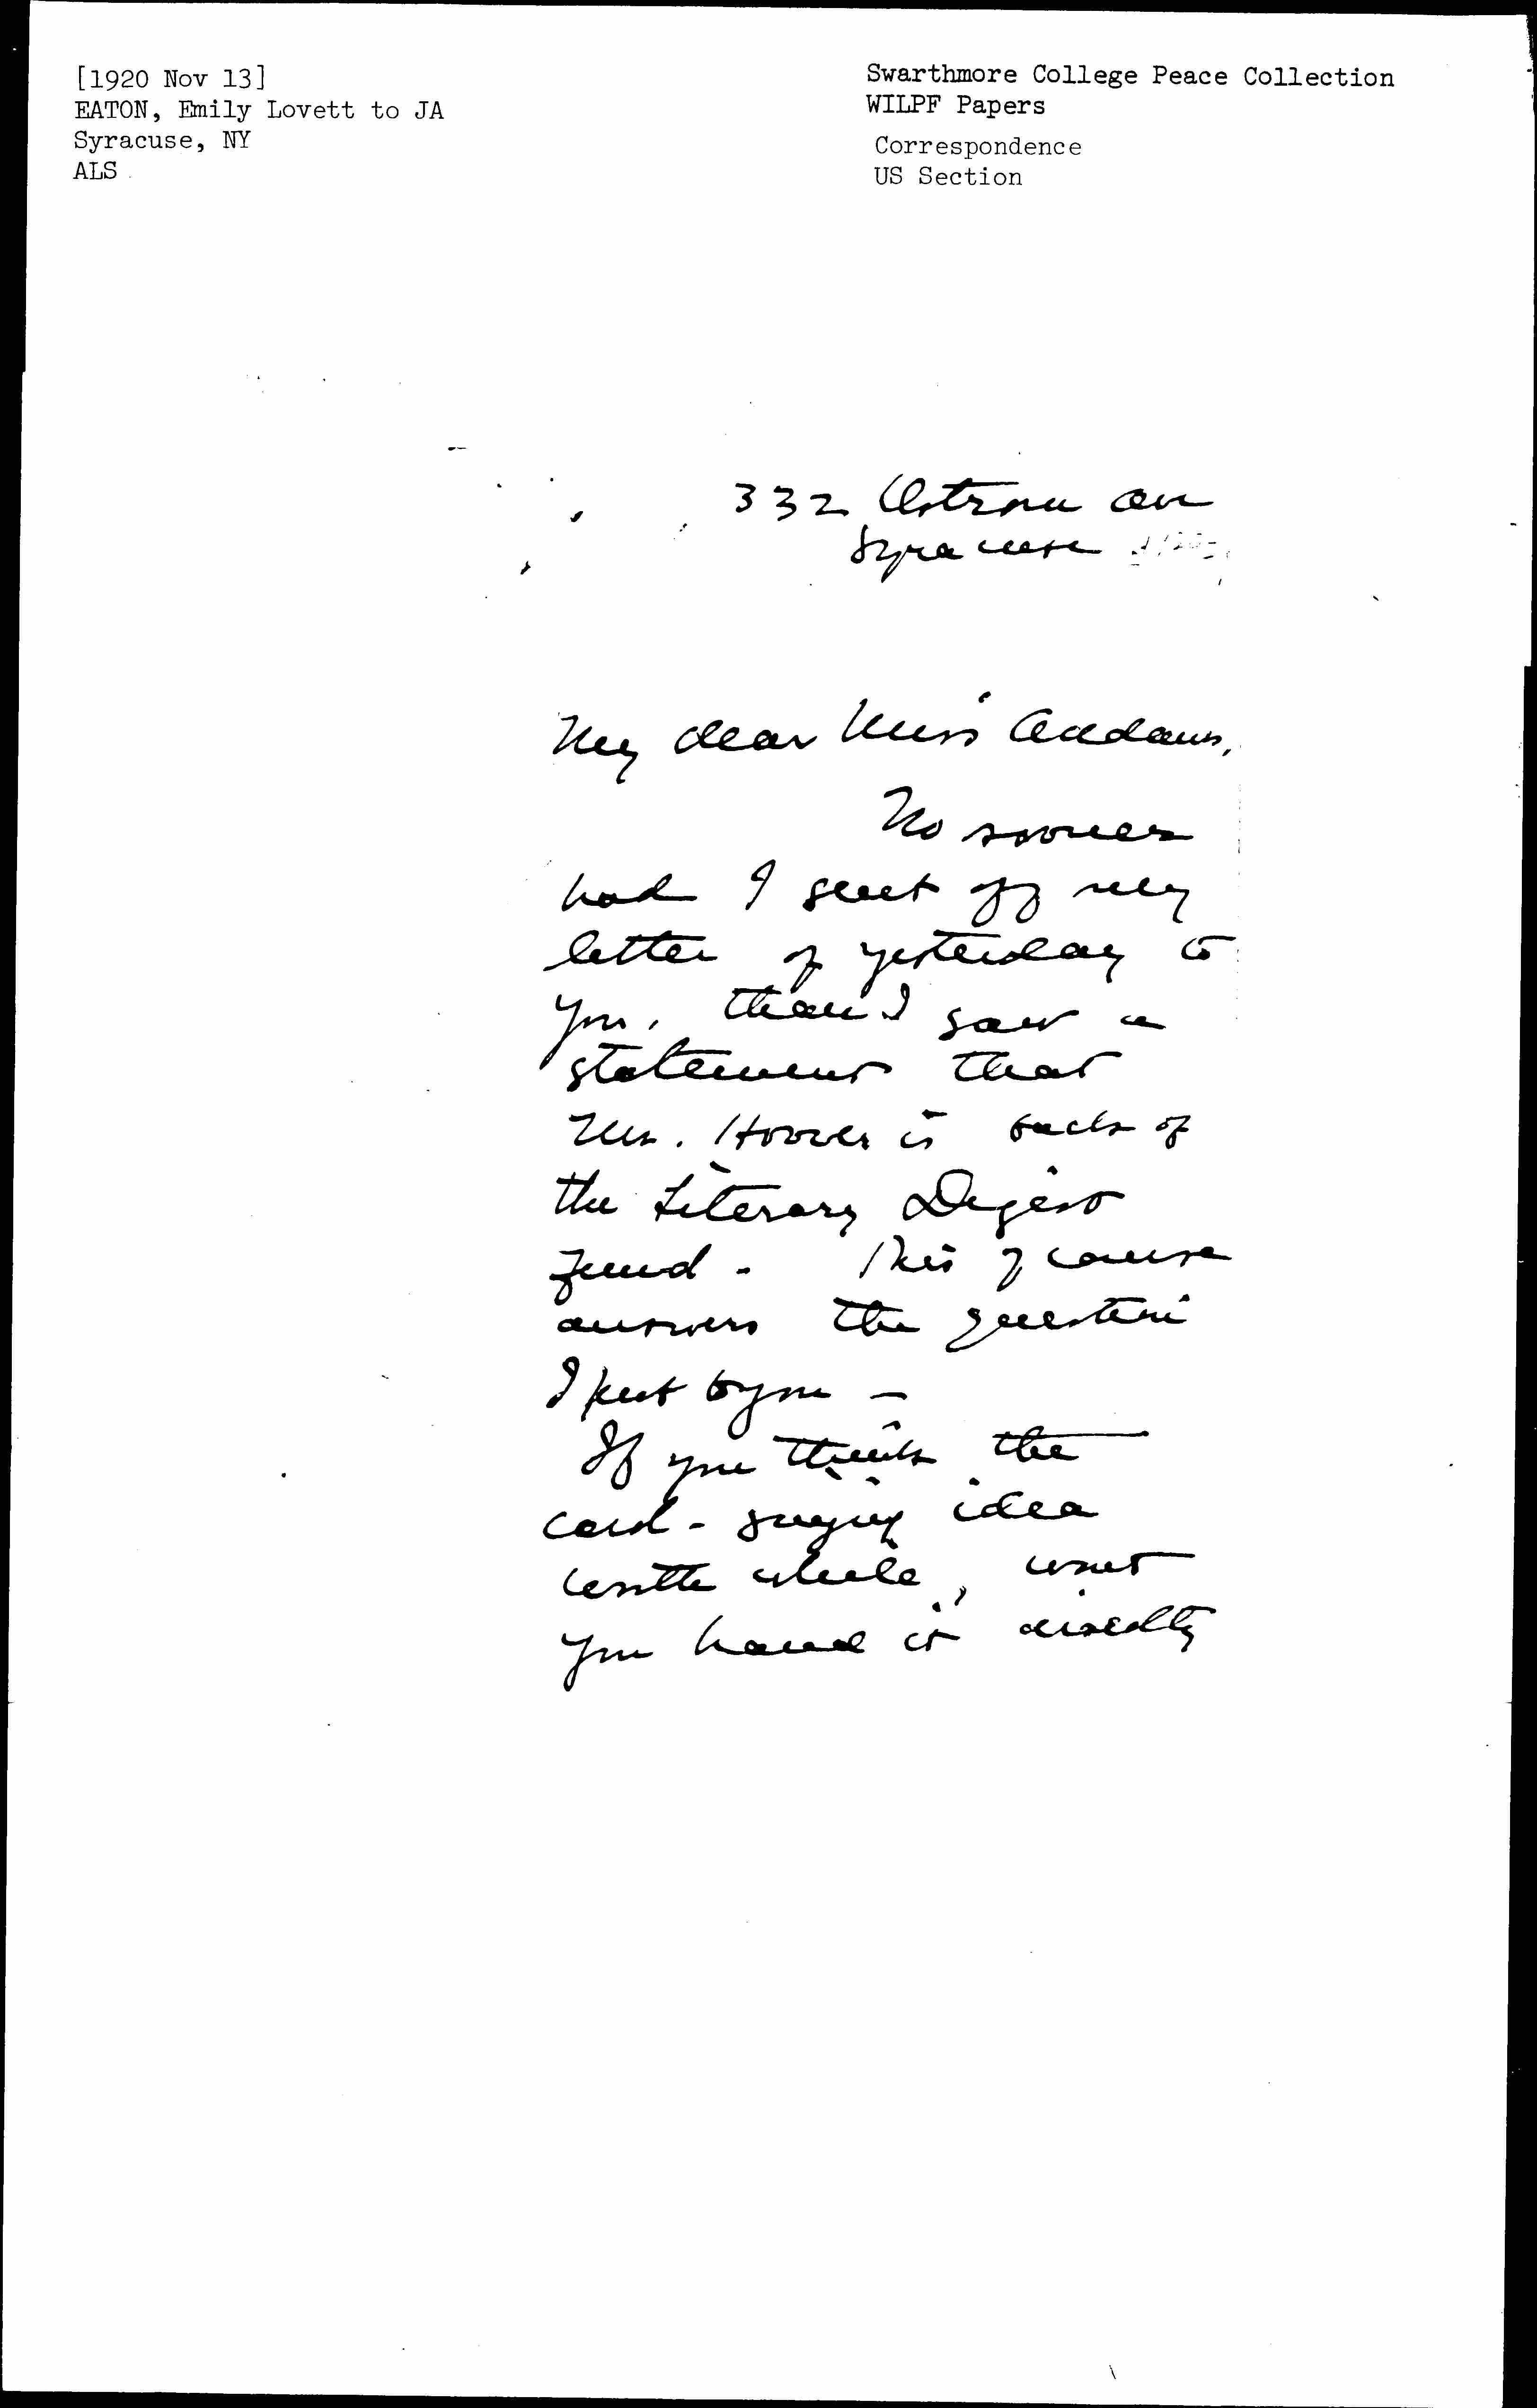 [1920 Nov 13]
EATON, Emily Lovett to JA
Syracuse, NY
ALS
Swarthmore College Peace Collection
WILPF Papers
Correspondence
US Section
332 Ostrom av
Syracuse
My dear Miss Addams,
No sooner
had I sent off my
letter of yesterday to
you, than I saw a
statement that
Mr. Hoover is back of
the Literary Digest
fund - This of course
answers the question
I put to you -
If you think the
card - idea
worth while, wont
you hand it directly